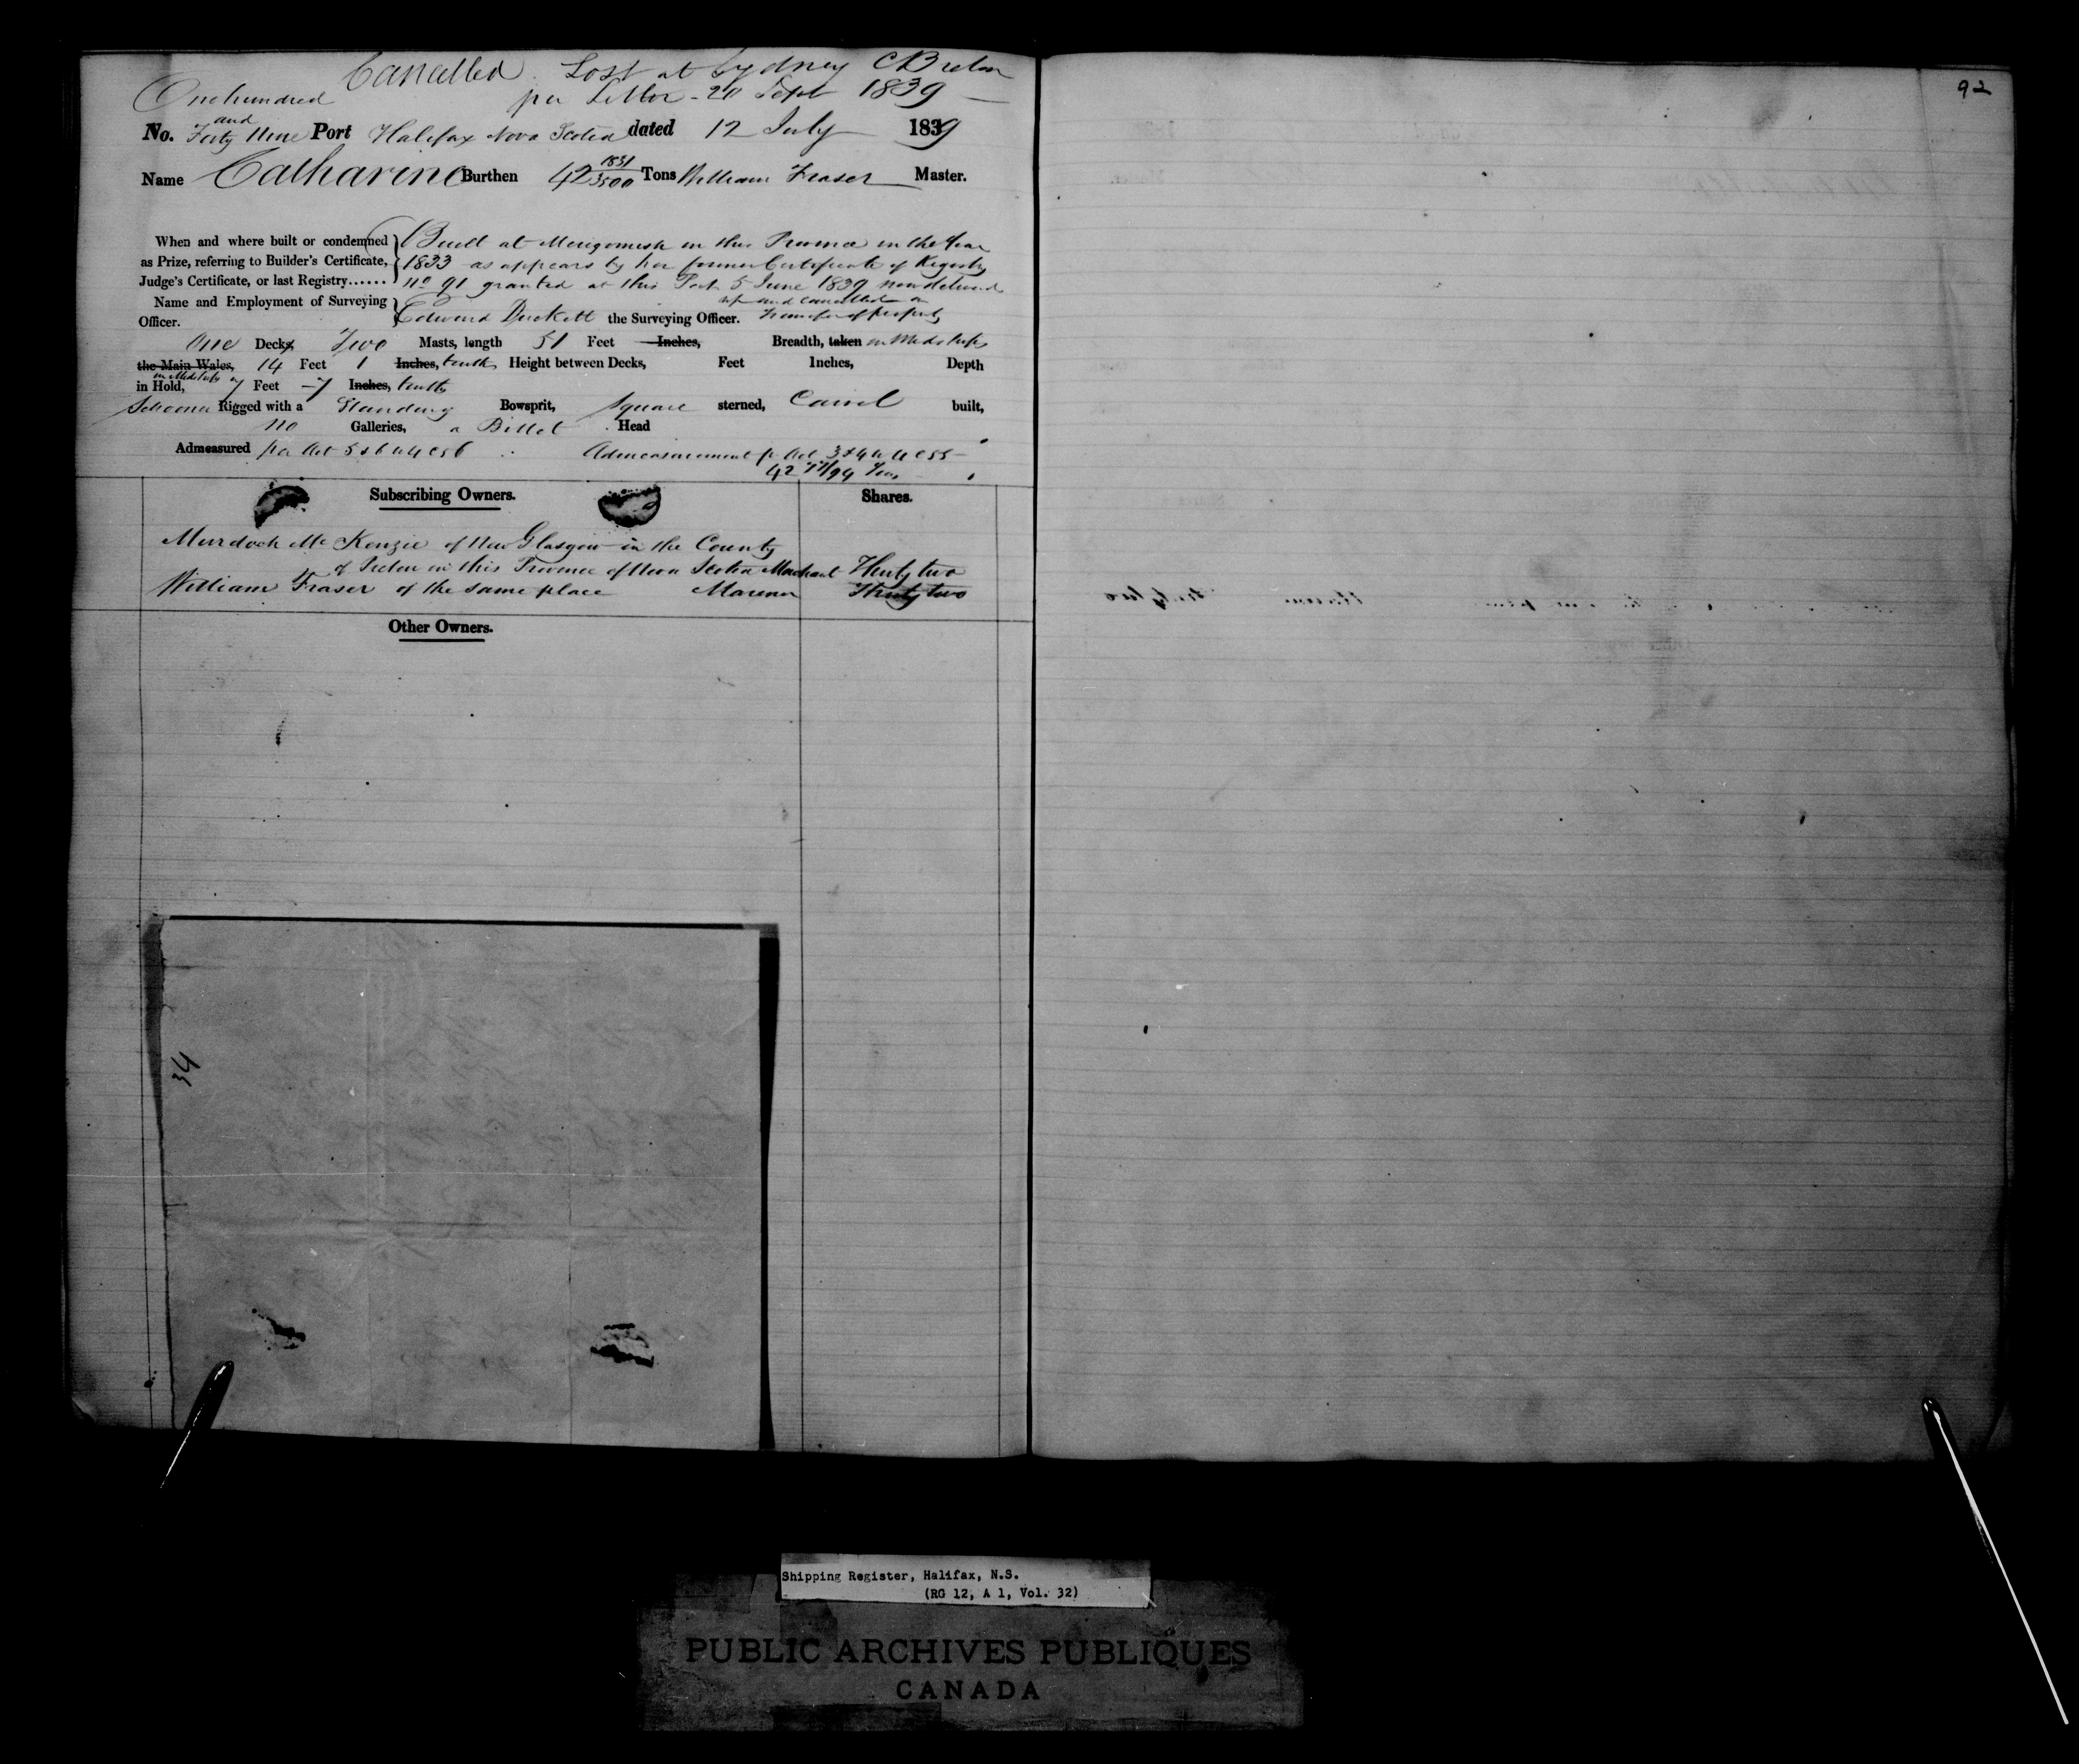 Cancelled. Lost at Sydney C Breton
per Letter - 20 Sept 1839
92
One hundred
and
No. Forty Nine Port Halifax Nova Scotia dated 12 July 1839
Name Catharine Burthen 42 1831/3500 Tons William Fraser Master.
When and where built or condemned as Prize, referring to Builder's Certificate, Judge's Certificate, or last Registry......
Built at Merigomish in this Province in the Year
1833 as appears by her former Certificate of Registry
No 91 granted at this Port 5 June 1839 now delivered
up and cancelled on
transfer of property
Name and Employment of Surveying Officer.
Edward Duckett the Surveying Officer.
One Decks Two Masts, length 51 Feet Inches, Breadth, taken in Midships
the Main Wales, 14 Feet 1 Inches, tenths Height between Decks, Feet Inches, Depth
in Midships
in Hold, 7 Feet 7 Inches, tenths
Schooner Rigged with a Standing Bowsprit, Square sterned, Carvel built,
no Galleries, a Billet Head
Admeasured per Act 5 & 6 W 4 C 56 Admeasurement p Act 3 & 4 W 4 C 55
42 /94 Tons
Subscribing Owners. Shares.
Murdoch McKenzie of New Glasgow in the County
of Pictou in this Province of Nova Scotia Merchant Thirty two
William Fraser of the same place Mariner Thirty two
Other Owners.
34
Shipping Register, Halifax, N.S.
(RG 12, A 1, Vol. 32)
PUBLIC ARCHIVES PUBLIQUES
CANADA